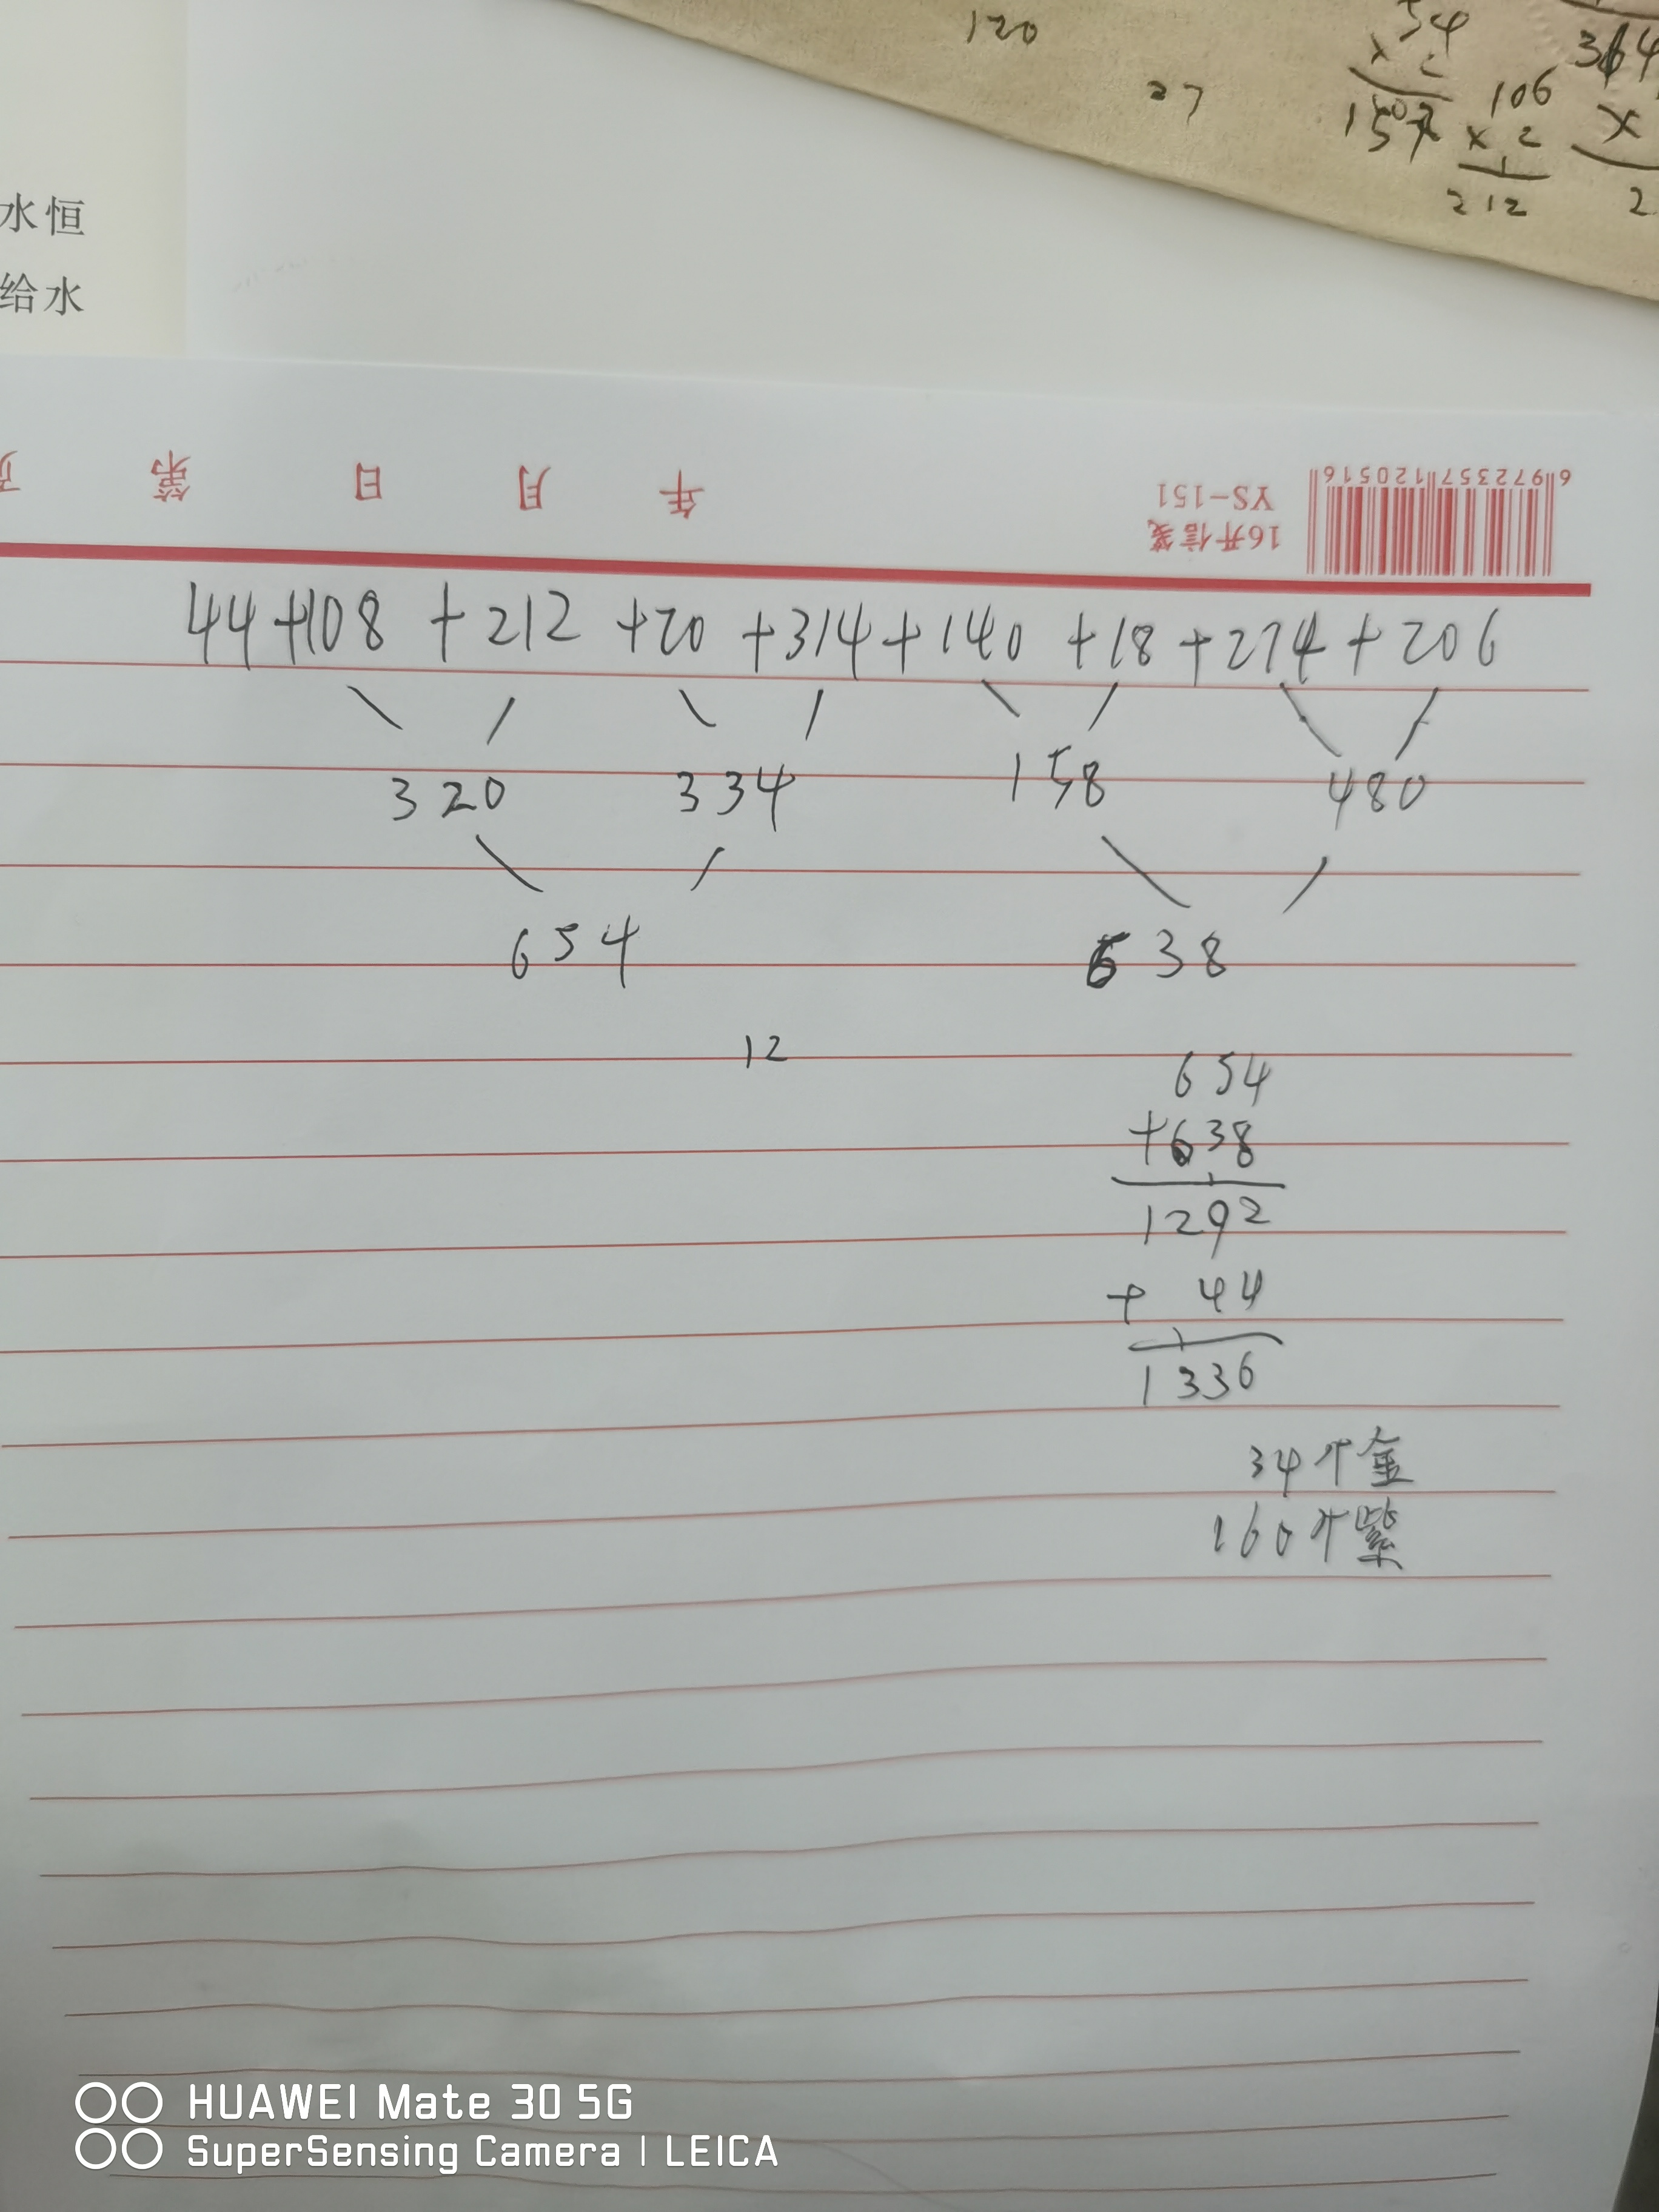 120
27
54
× 2
106
× 2
212
水恒
给水
页 第 日 月 年
6 972357 120516
YS-151
16开信笺
44+108+212+20+314+140+18+274+206
320 334 158 480
654 638
12
654
+638
1292
+ 44
1336
34个金
160个紫
HUAWEI Mate 30 5G
SuperSensing Camera | LEICA